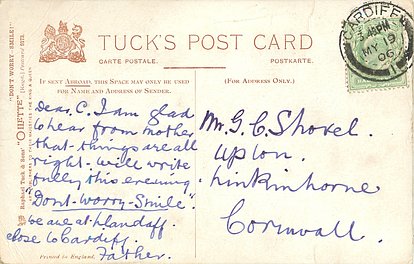 TUCK'S POST CARD
CARTE POSTALE.
POSTKARTE.
IF SENT ABROAD, THIS SPACE MAY ONLY BE USED
FOR NAME AND ADDRESS OF SENDER.
(FOR ADDRESS ONLY.)
CARDIFF
MY 9
06
"DON'T WORRY—SMILE!"
Postcard
Raphael Tuck & Sons' "OILETTE"
Dear C. I am glad
to hear from mother
that things are all
right. Will write
fully this evening.
"Dont-Worry-Smile".
we are at Llandaff
close to Cardiff.
Father.
Mr. G. C. Shovel.
Upton.
Linkinhorne
Cornwall.
Printed in England.